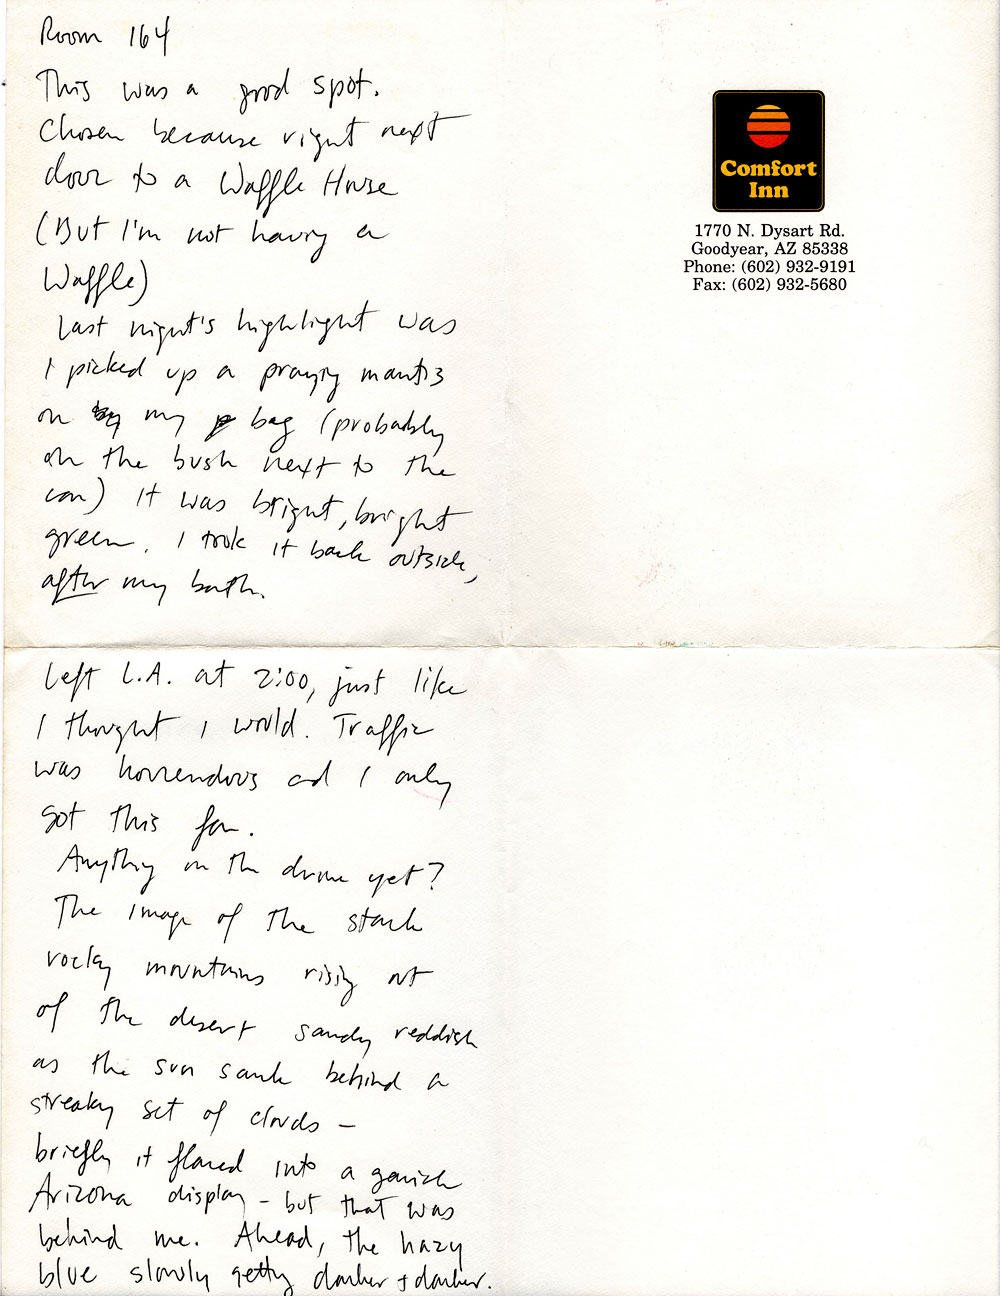 Room 164
This was a good spot.
Chosen because right next
door to a Waffle House
(But I'm not having a
Waffle)
Last night's highlight was
I picked up a praying mantis
on my bag (probably
on the bush next to the
car) It was bright, bright
green. I took it back outside,
after my bath.
Left L.A. at 2:00, just like
I thought I would. Traffic
was horrendous and I only
got this far.
Anything on the drive yet?
The image of the stark
rocky mountains rising out
of the desert sandy reddish
as the sun sank behind a
streaky set of clouds –
briefly it flared into a garish
Arizona display – but that was
behind me. Ahead, the hazy
blue slowly getting darker + darker.
Comfort
Inn
1770 N. Dysart Rd.
Goodyear, AZ 85338
Phone: (602) 932-9191
Fax: (602) 932-5680